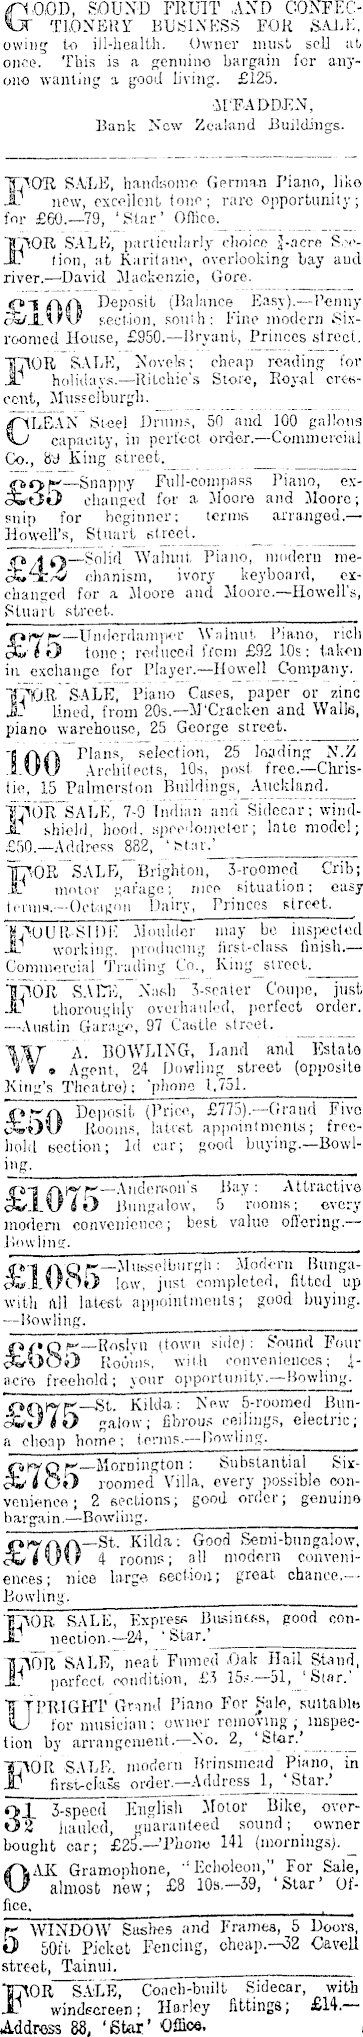 GOOD, SOUND FRUIT AND CONFEC-
TIONERY BUSINESS FOR SALE,
owing to ill-health. Owner must sell at
once. This is a genuine bargain for any-
one wanting a good living. £125.
M'FADDEN,
Bank New Zealand Buildings.
FOR SALE, handsome German Piano, like
new, excellent tone; rare opportunity;
for £60.—79, 'Star' Office.
FOR SALE, particularly choice ¼-acre Sec-
tion, at Karitane, overlooking bay and
river.—David Mackenzie, Gore.
£100 Deposit (Balance Easy).—Penny
section, south: Fine modern Six-
roomed House, £950.—Bryant, Princes street.
FOR SALE, Novels; cheap reading for
holidays.—Ritchie's Store, Royal cres-
cent, Musselburgh.
CLEAN Steel Drums, 50 and 100 gallons
capacity, in perfect order.—Commercial
Co., 89 King street.
£35—Snappy Full-compass Piano, ex-
changed for a Moore and Moore;
snip for beginner; terms arranged.—
Howell's, Stuart street.
£42—Solid Walnut Piano, modern me-
chanism, ivory keyboard, ex-
changed for a Moore and Moore.—Howell's,
Stuart street.
£75—Underdamper Walnut Piano, rich
tone; reduced from £92 10s; taken
in exchange for Player.—Howell Company.
FOR SALE, Piano Cases, paper or zinc
lined, from 20s.—M'Cracken and Walls,
piano warehouse, 25 George street.
100 Plans, selection, 25 leading N.Z
Architects, 10s, post free.—Chris-
tie, 15 Palmerston Buildings, Auckland.
FOR SALE, 7-9 Indian and Sidecar; wind-
shield, hood, speedometer; late model;
£50.—Address 882, 'Star.'
FOR SALE, Brighton, 3-roomed Crib;
motor garage; nice situation; easy
terms.—Octagon Dairy, Princes street.
FOUR-SIDE Moulder may be inspected
working, producing first-class finish.—
Commercial Trading Co., King street.
FOR SALE, Nash 3-seater Coupe, just
thoroughly overhauled, perfect order.
—Austin Garage, 97 Castle street.
W. A. BOWLING, Land and Estate
Agent, 24 Dowling street (opposite
King's Theatre); 'phone 1,751.
£50 Deposit (Price, £775).—Grand Five
Rooms, latest appointments; free-
hold section; 1d car; good buying.—Bowl-
ing.
£1075—Anderson's Bay: Attractive
Bungalow, 5 rooms; every
modern convenience; best value offering.—
Bowling.
£1085—Musselburgh: Modern Bunga-
low, just completed, fitted up
with all latest appointments; good buying.
—Bowling.
£685—Roslyn (town side): Sound Four
Rooms, with conveniences; ¼-
acre freehold; your opportunity.—Bowling.
£975—St. Kilda: New 5-roomed Bun-
galow; fibrous ceilings, electric;
a cheap home; terms.—Bowling.
£785—Mornington: Substantial Six-
roomed Villa, every possible con-
venience; 2 sections; good order; genuine
bargain.—Bowling.
£700—St. Kilda: Good Semi-bungalow,
4 rooms; all modern conveni-
ences; nice large section; great chance.—
Bowling.
FOR SALE, Express Business, good con-
nection.—24, 'Star.'
FOR SALE, neat Fumed Oak Hall Stand,
perfect condition, £3 15s.—51, 'Star.'
UPRIGHT Grand Piano For Sale, suitable
for musician; owner removing; inspec-
tion by arrangement.—No. 2, 'Star.'
FOR SALE, modern Brinsmead Piano, in
first-class order.—Address 1, 'Star.'
3½ 3-speed English Motor Bike, over-
hauled, guaranteed sound; owner
bought car; £25.—'Phone 141 (mornings).
OAK Gramophone, "Echoleon," For Sale,
almost new; £8 10s.—39, 'Star' Of-
fice.
5 WINDOW Sashes and Frames, 5 Doors,
50ft Picket Fencing, cheap.—32 Cavell
street, Tainui.
FOR SALE, Coach-built Sidecar, with
windscreen; Harley fittings; £14.—
Address 88, 'Star' Office.